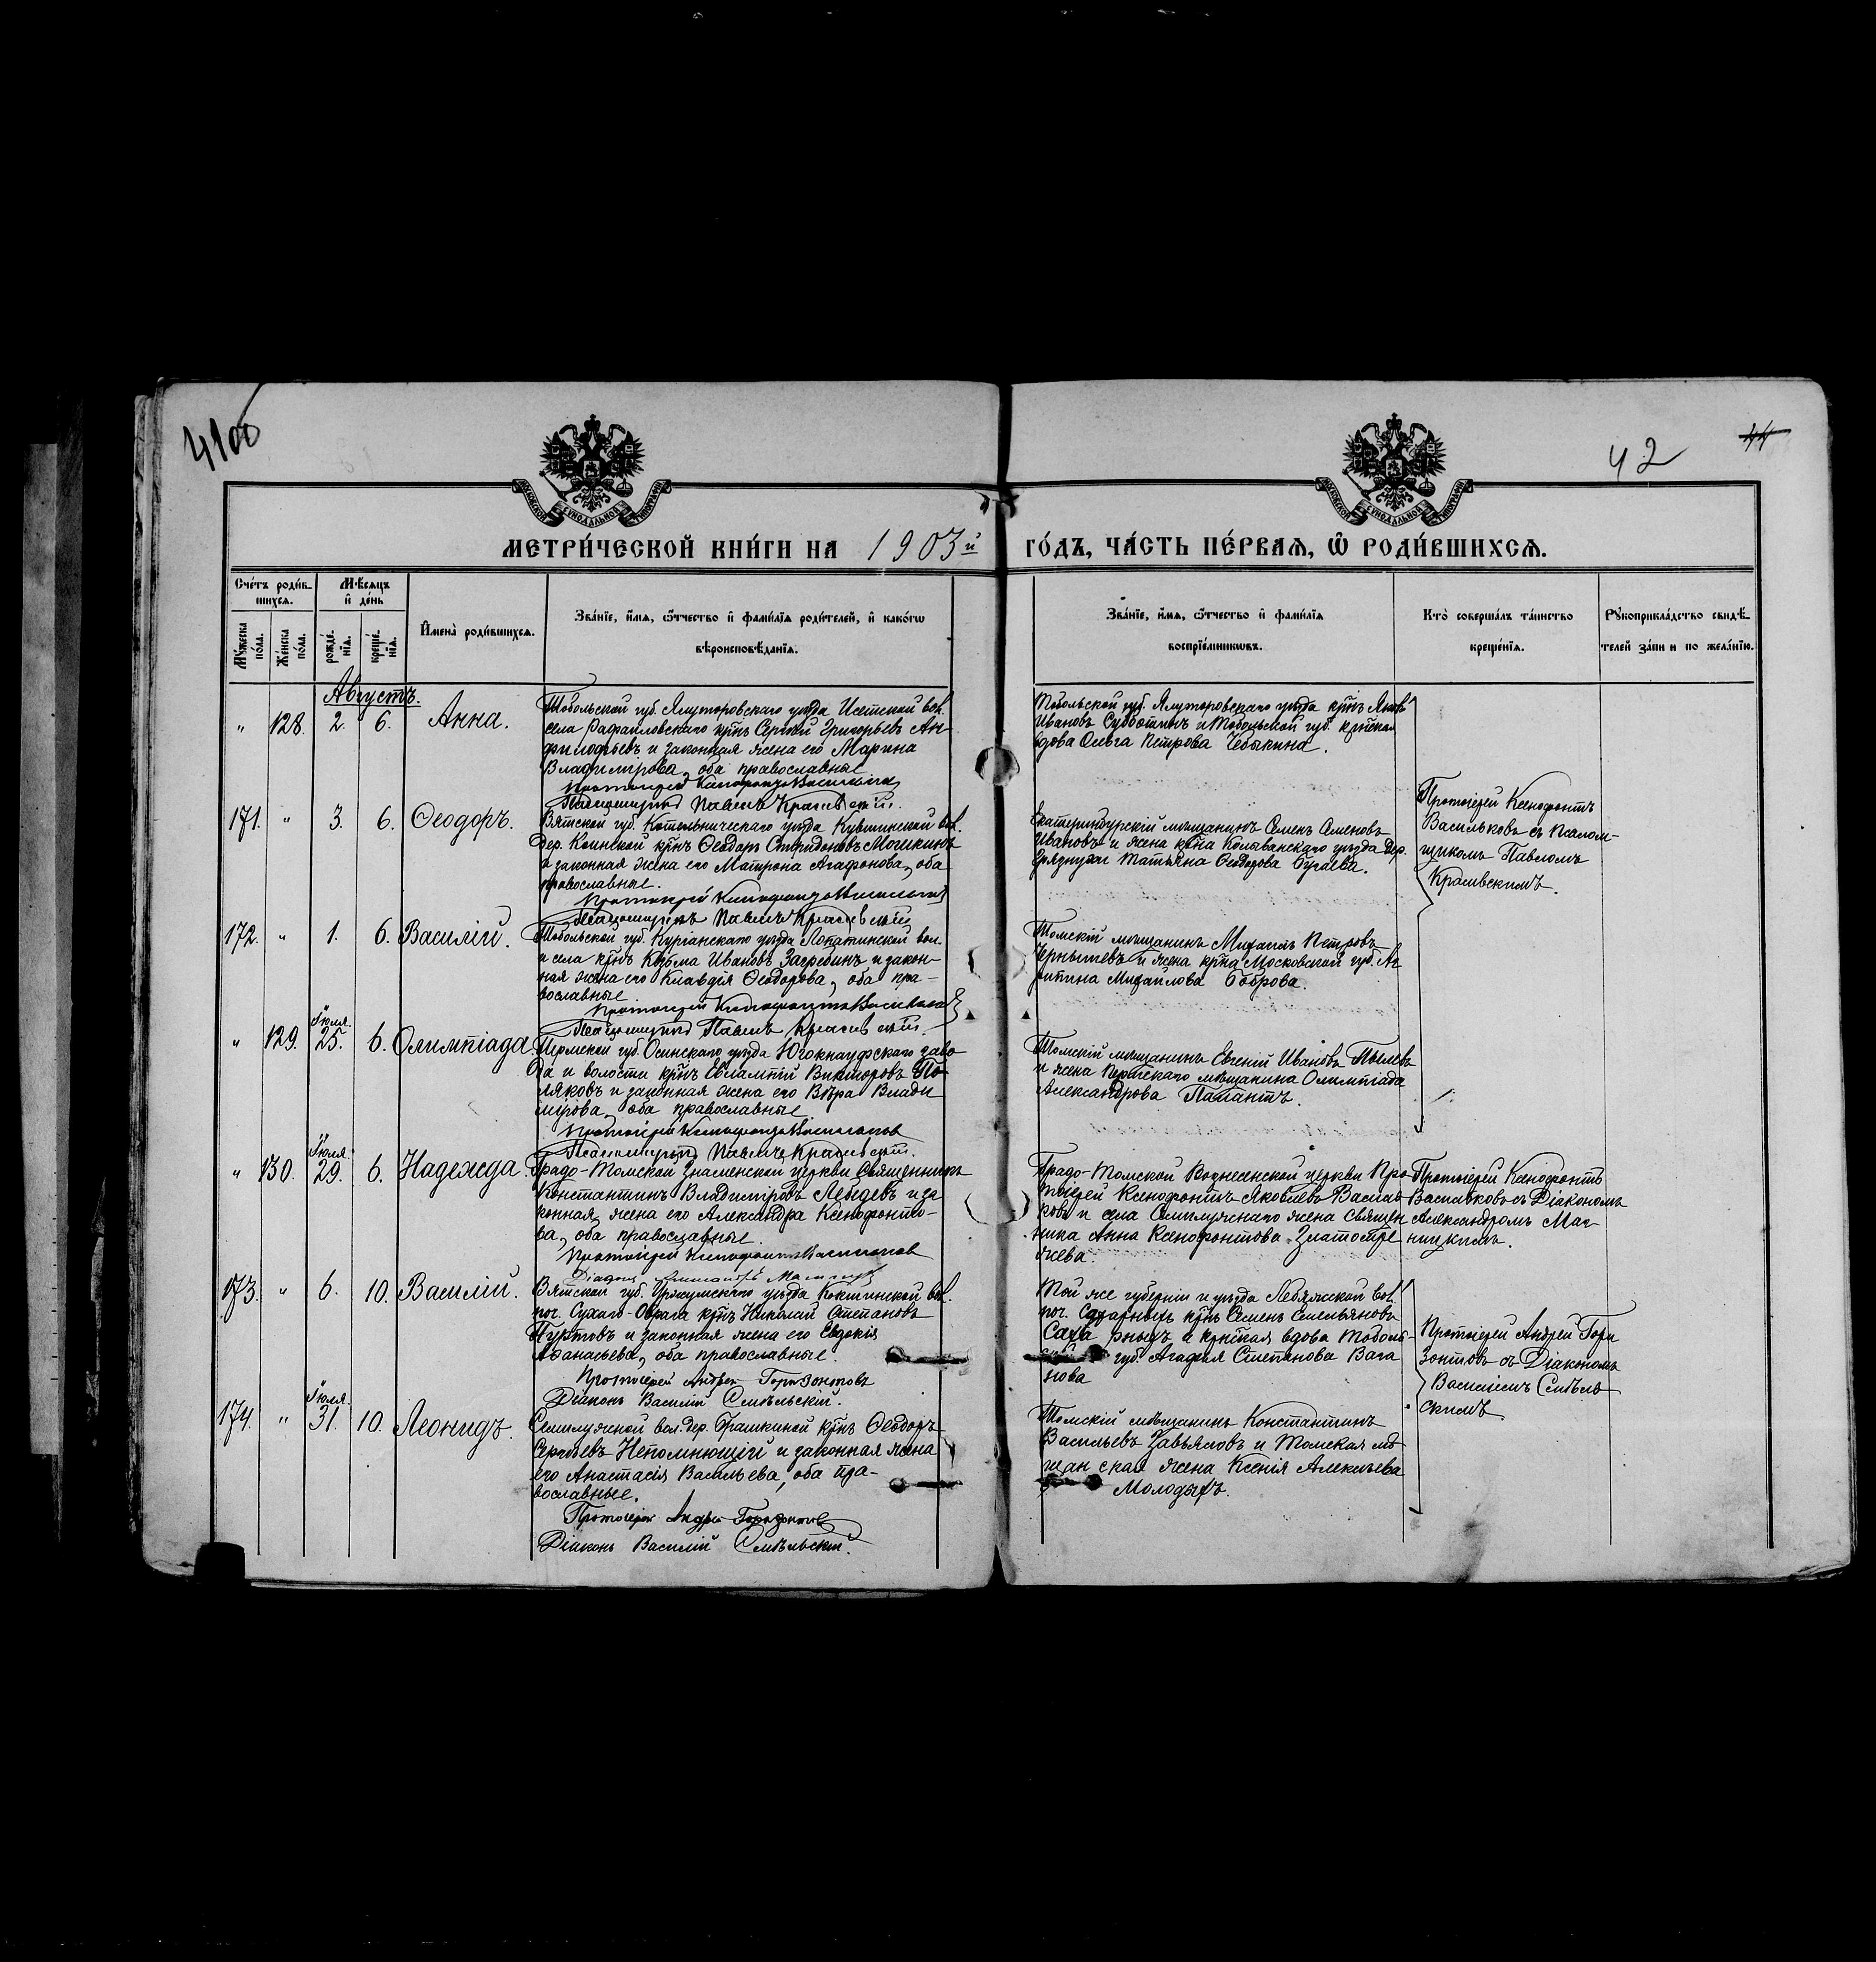 4100
42
44
МОСКОВСКОЙ СУНОДАЛЬНОЙ ТИПОГРАФІИ
МОСКОВСКОЙ СУНОДАЛЬНОЙ ТИПОГРАФІИ
МЕТРИ́ЧЕСКОЙ КНИ́ГИ НА 1903й ГО́ДЪ, ЧА́СТЬ ПЕ́РВАЯ, Ѡ РОДИ́ВШИХСЯ.
Сче́тъ роди́в-
шихся.
Мѣ́сяцъ
и҆ де́нь
Му́жеска по́ла.
Же́нска по́ла.
рожде́-
нїя.
креще́-
нїя.
И҆мена̀ роди́вшихся.
Зва́нїе, и҆́мя, ѻ҆́тчество и҆ фами́лїя роди́телей, и҆ како́гѡ
вѣроисповѣ́данїя.
Зва́нїе, и҆́мя, ѻ҆́тчество и҆ фами́лїя
воспрїе́мникѡвъ.
Кто̀ соверша́лъ та́инство
креще́нїя.
Рꙋкоприкла́дство свидѣ́-
телей за́пи и по жела́нїю.
Августъ.
" 128. 2. 6. Анна.
Тобольской губ. Ялуторовскаго уѣзда Исетской вол.
села Рафаиловскаго крнъ Сергѣй Григорьевъ Ан-
филофьевъ и законная жена его Марина
Владимірова, оба православные
Протоіерей Ксенофонтъ Васильковъ
Псаломщикъ Павелъ Краснвскій.
Тобольской губ. Ялуторовскаго уѣзда крнъ
Ивановъ Субботинъ и Тобольской губ. крнская
вдова Ольга Петрова Чебыкина.
171. " 3. 6. Ѳеодоръ.
Вятской губ. Котельническаго уѣзда Кувшинской вол.
дер. крнъ Ѳеодоръ Спиридоновъ Мошкинъ
и законная жена его Матрона Агафонова, оба
православные.
Протоіерей Ксенофонтъ Васильковъ
Псаломщикъ Павелъ
Екатеринбурскій мѣщанинъ Семенъ Семеновъ
Ивановъ и жена крна Колыванскаго уѣзда дер.
Татьяна Ѳеодорова Бугаева.
Протоіерей Ксенофонтъ
Васильковъ съ псалом-
щикомъ Павломъ
172. " 1. 6. Василій.
Тобольской губ. Курганскаго уѣзда Лопатинской вол.
и села крнъ Козьма Ивановъ Загребинъ и закон-
ная жена его Клавдія Ѳеодорова, оба пра-
вославные
Протоіерей Ксенофонтъ Васильковъ
Псаломщикъ Павелъ
Томскій мѣщанинъ Михаилъ Петровъ
Чернышевъ и жена крна Московской губ. Аг
рипина Михайлова Боброва.
" 129. Іюля 25. 6. Олимпіада.
Пермской губ. Осинскаго уѣзда Югокнауфскаго заво
да и волости крнъ Евлампій Викторовъ По-
ляковъ и законная жена его Вѣра Влади
мірова, оба православные
Протоіерей Ксенофонтъ Васильковъ
Псаломщикъ Павелъ
Томскій мѣщанинъ Евгеній Ивановъ
и жена мѣщанина Олимпіада
Александрова
" 130. Іюля 29. 6. Надежда.
Градо-Томской Знаменской церкви Священникъ
Константинъ Владиміровъ Лебедевъ и за
конная жена его Александра Ксенофонто-
ва, оба православные.
Протоіерей Ксенофонтъ Васильковъ
Діаконъ Александръ
Градо-Томской Вознесенской церкви Про
тоіерей Ксенофонтъ Яковлевъ Василь
ковъ и села Семилужнаго жена Священ
ника Анна Ксенофонтова Златомре
жева.
Протоіерей Ксенофонтъ
Васильковъ съ Діакономъ
Александромъ Маг-
ницкимъ.
173. " 6. 10. Василій.
Вятской губ. Уржумскаго уѣзда Кокшинской вол.
поч. Сухаго-Оврага крнъ Николай Степановъ
Пуртовъ и законная жена его Евдокія
Аѳанасьева, оба православные.
Протоіерей Андрей Горизонтовъ
Діаконъ Василій Смѣльскій.
Той же губерніи и уѣзда Лебяжской вол.
поч. Сахарныхъ крнъ Семенъ Емельяновъ
Саха рныхъ и крнская вдова Тоболь-
ской губ. Агафья Степанова Вага
нова
Протоіерей Андрей Гори
зонтовъ съ Діакономъ
Василіемъ Смѣль-
скимъ.
174. " Іюля 31. 10. Леонидъ.
Семилужной вол. дер. крнъ Ѳеодоръ
Сергѣевъ Непомнющій и законная жена
его Анастасія Васильева, оба пра-
вославные.
Протоіерей Андрей Горизонтовъ
Діаконъ Василій Смѣльскій.
Томскій мѣщанинъ Константинъ
Васильевъ Завьяловъ и Томская мѣ
щан ская жена Ксенія Алексѣева
Молодыхъ.